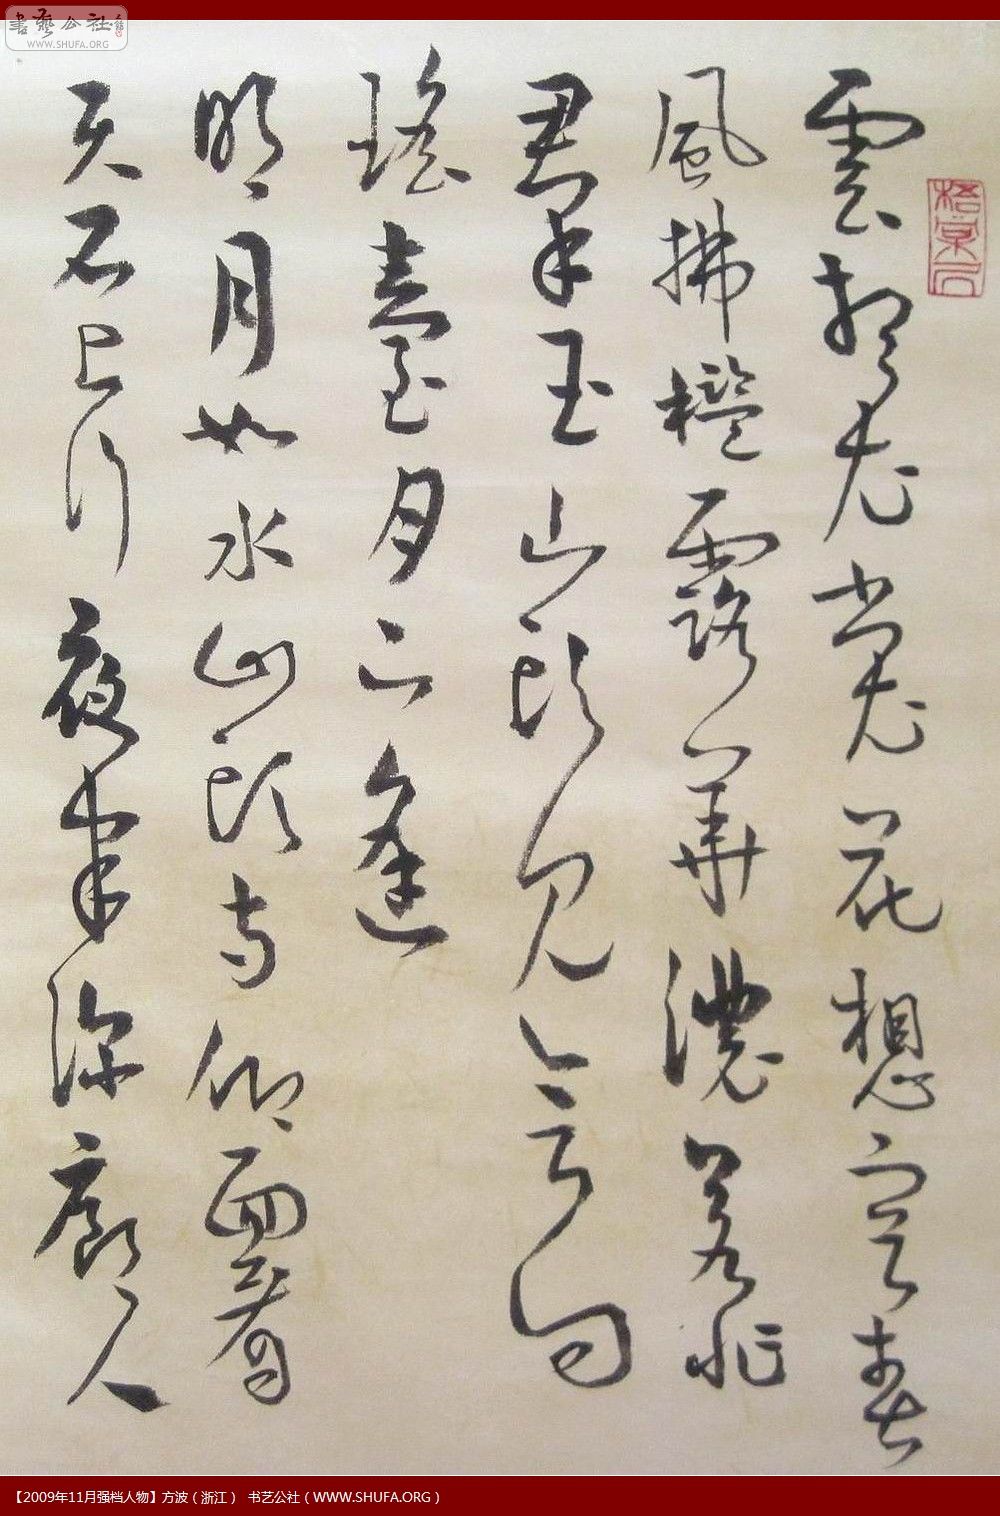 書藝公社
WWW.SHUFA.ORG
雲想衣裳花想容春
風拂檻露華濃若非
羣玉山頭見會向
瑤臺月下逢
明月如水山頭寺仰面看
天石上行夜半深廊人
【2009年11月强档人物】方波（浙江） 书艺公社（WWW.SHUFA.ORG）